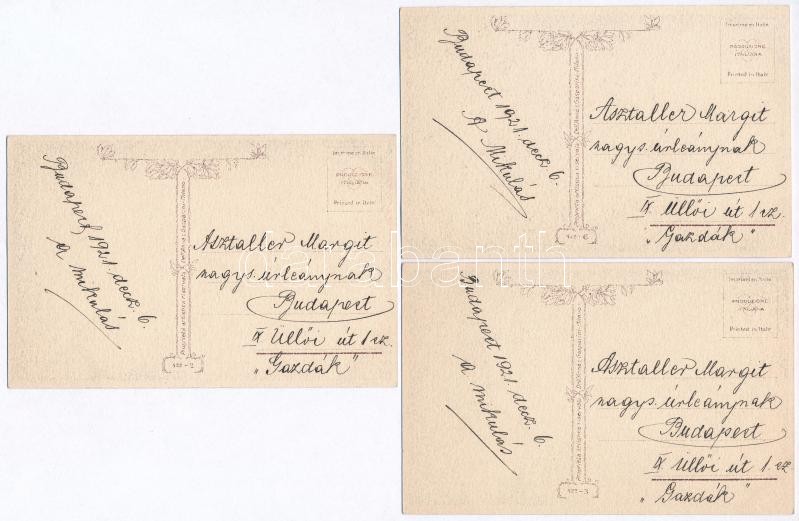 Budapest 1921. decz. 6.
a mikulás
Imprimé en Italie
PRODUZIONE
ITALIANA
Printed in Italy
Asztaller Margit
nagys. úrleánynak
Budapest
IX Üllői út 1 sz.
"Gazdák"
122-2
Budapest 1921. decz. 6.
A Mikulás
Imprimé en Italie
PRODUZIONE
ITALIANA
Printed in Italy
Asztaller Margit
nagys. úrleánynak
Budapest
IX Üllői út 1 sz.
"Gazdák"
122-6
Budapest 1921. decz. 6.
a mikulás
Imprimé en Italie
PRODUZIONE
ITALIANA
Printed in Italy
Asztaller Margit
nagys. úrleánynak
Budapest
IX Üllői út 1. sz.
"Gazdák"
122-3
darabanth